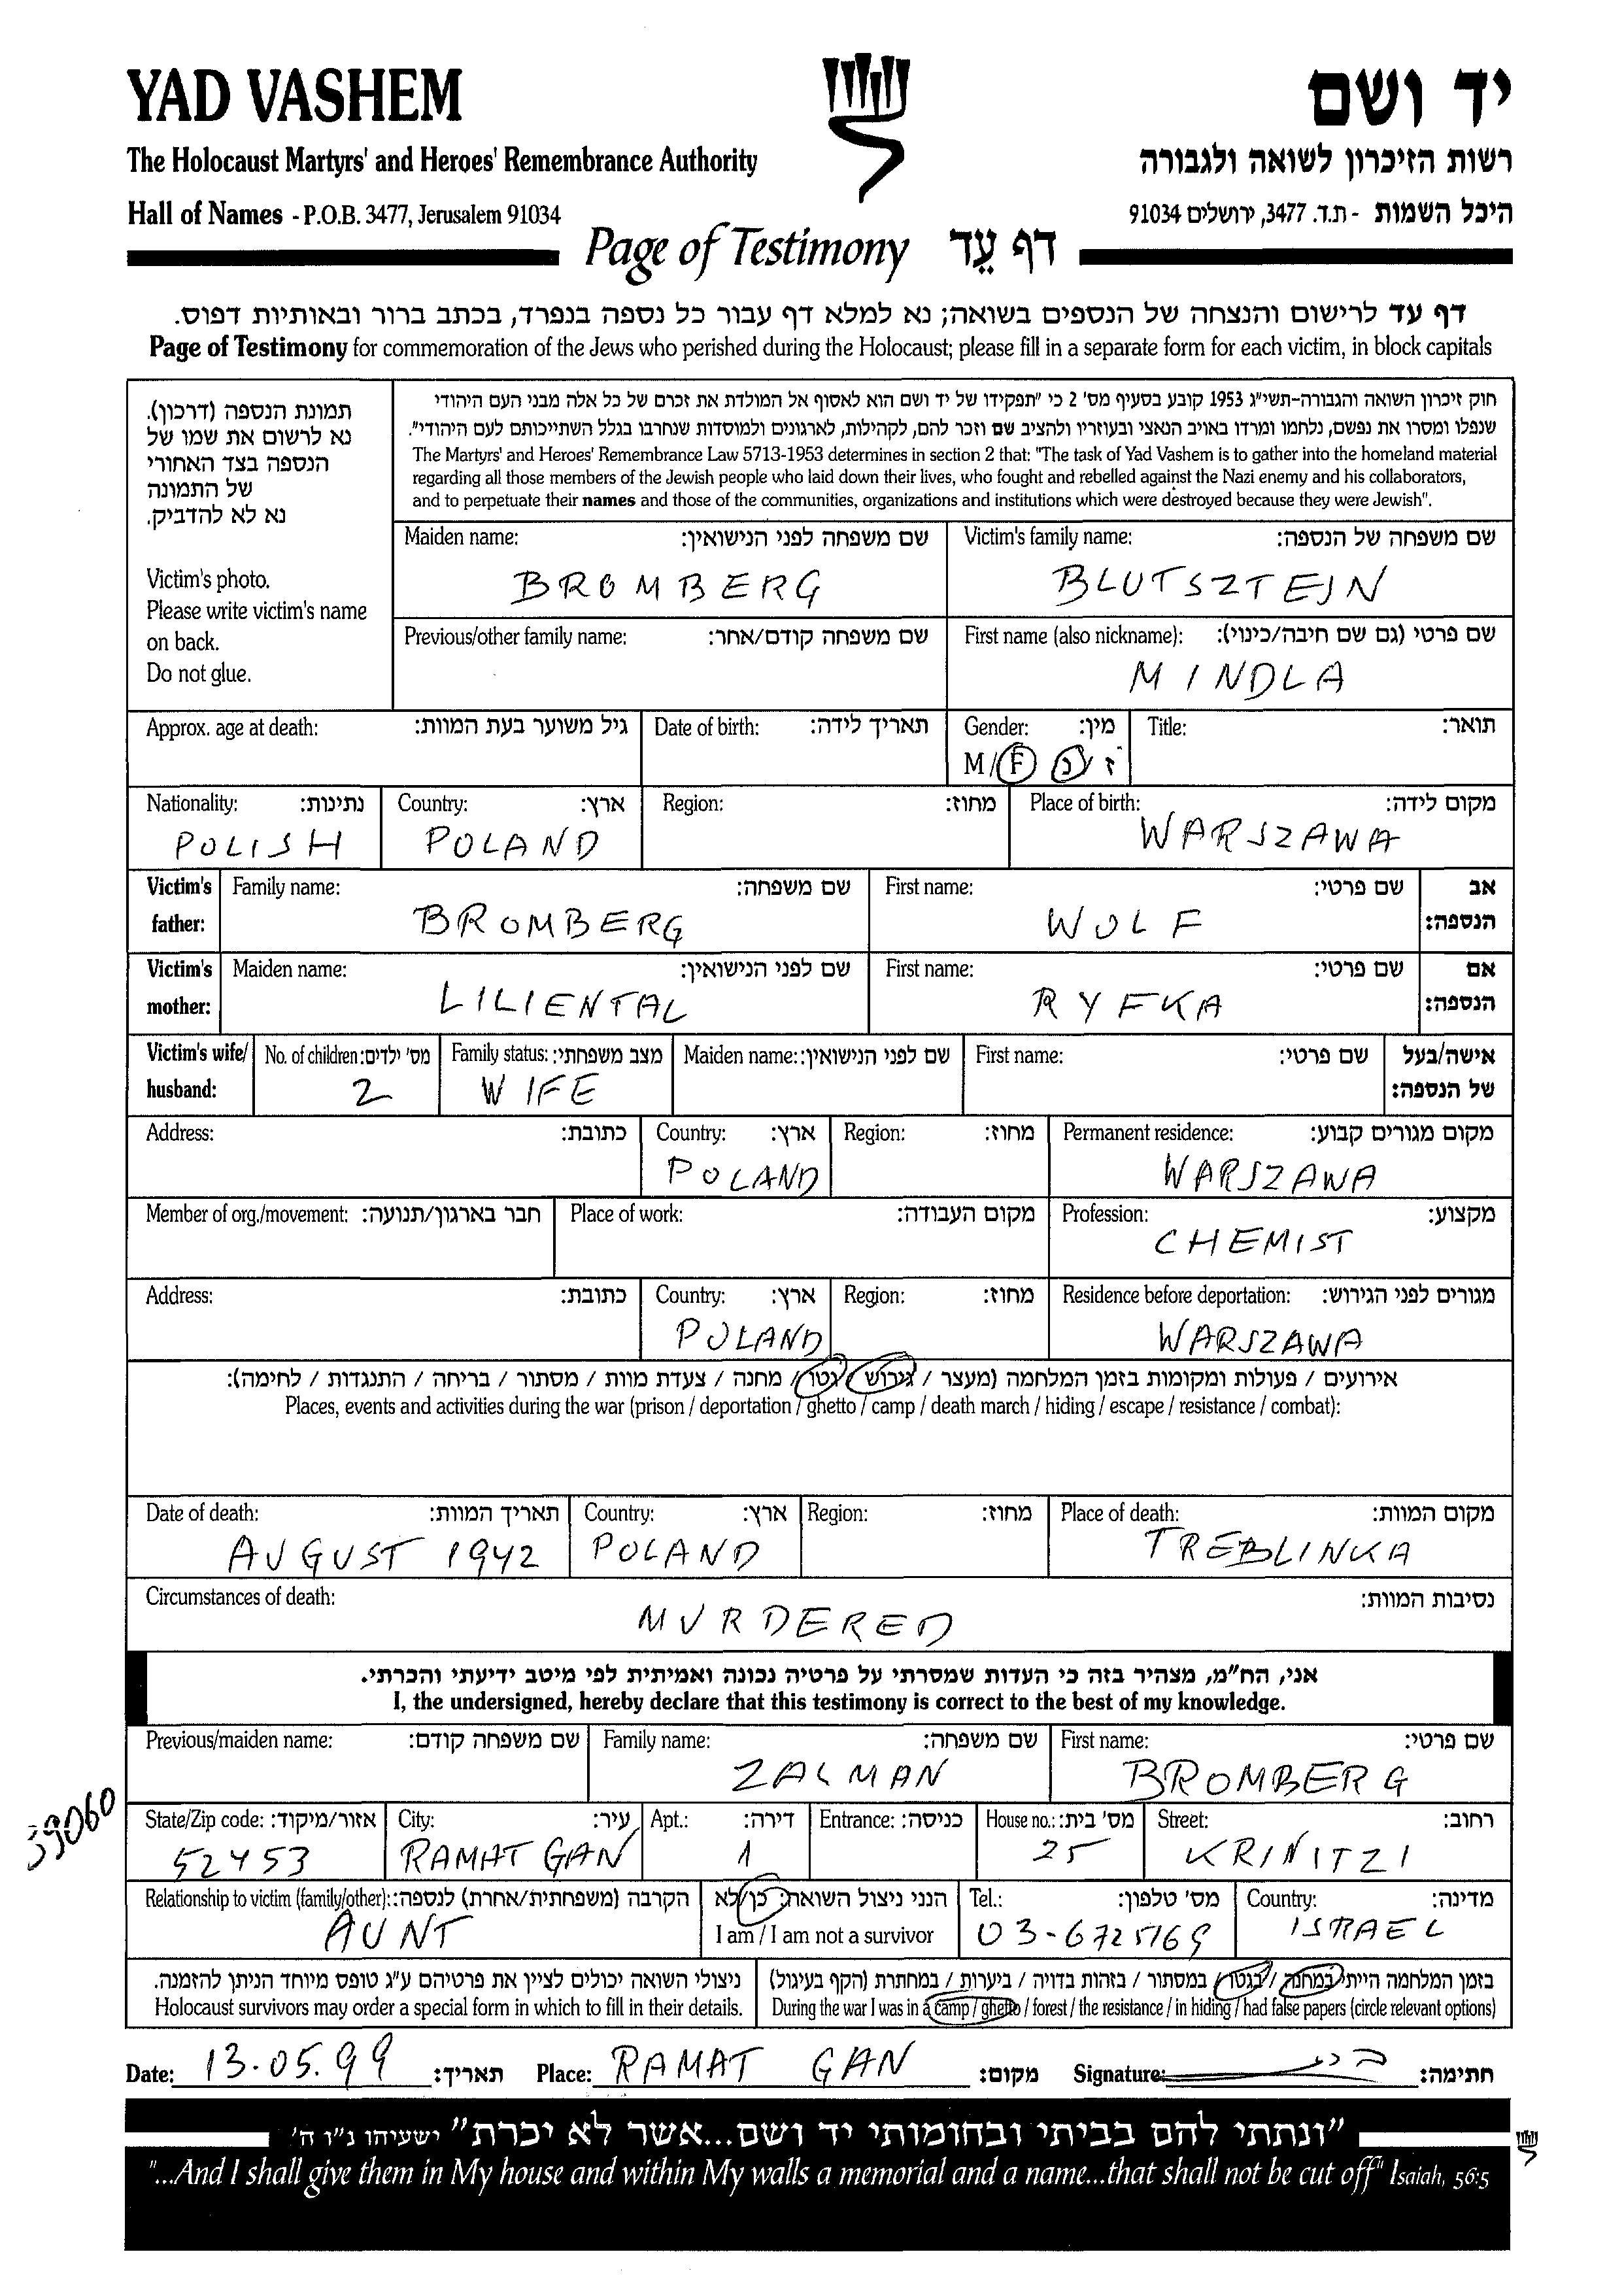 YAD VASHEM
יד ושם
The Holocaust Martyrs' and Heroes' Remembrance Authority
רשות הזיכרון לשואה ולגבורה
Hall of Names - P.O.B. 3477, Jerusalem 91034
היכל השמות - ת.ד. 3477, ירושלים 91034
Page of Testimony דף עֵד
דף עד לרישום והנצחה של הנספים בשואה; נא למלא דף עבור כל נספה בנפרד, בכתב ברור ובאותיות דפוס.
Page of Testimony for commemoration of the Jews who perished during the Holocaust; please fill in a separate form for each victim, in block capitals
תמונת הנספה (דרכון).
נא לרשום את שמו של
הנספה בצד האחורי
של התמונה
נא לא להדביק.
Victim's photo.
Please write victim's name
on back.
Do not glue.
חוק זיכרון השואה והגבורה-תשי"ג 1953 קובע בסעיף מס' 2 כי "תפקידו של יד ושם הוא לאסוף אל המולדת את זכרם של כל אלה מבני העם היהודי
שנפלו ומסרו את נפשם, נלחמו ומרדו באויב הנאצי ובעוזריו ולהציב שם וזכר להם, לקהילות, לארגונים ולמוסדות שנחרבו בגלל השתייכותם לעם היהודי".
The Martyrs' and Heroes' Remembrance Law 5713-1953 determines in section 2 that: "The task of Yad Vashem is to gather into the homeland material
regarding all those members of the Jewish people who laid down their lives, who fought and rebelled against the Nazi enemy and his collaborators,
and to perpetuate their names and those of the communities, organizations and institutions which were destroyed because they were Jewish".
Maiden name: שם משפחה לפני הנישואין:
BROMBERG
Victim's family name: שם משפחה של הנספה:
BLUTSZTEJN
Previous/other family name: שם משפחה קודם/אחר:
First name (also nickname): שם פרטי (גם שם חיבה/כינוי):
MINDLA
Approx. age at death: גיל משוער בעת המוות:
Date of birth: תאריך לידה:
Gender: מין:
M/F ז/נ
Title: תואר:
Nationality: נתינות:
POLISH
Country: ארץ:
POLAND
Region: מחוז:
Place of birth: מקום לידה:
WARSZAWA
Victim's father:
Family name: שם משפחה:
BROMBERG
First name: שם פרטי:
WOLF
אב הנספה:
Victim's mother:
Maiden name: שם לפני הנישואין:
LILIENTAL
First name: שם פרטי:
RYFKA
אם הנספה:
Victim's wife/ husband:
No. of children: מס' ילדים:
2
Family status: מצב משפחתי:
WIFE
Maiden name: שם לפני הנישואין:
First name: שם פרטי:
אישה/בעל של הנספה:
Address: כתובת:
Country: ארץ:
POLAND
Region: מחוז:
Permanent residence: מקום מגורים קבוע:
WARSZAWA
Member of org./movement: חבר בארגון/תנועה:
Place of work: מקום העבודה:
Profession: מקצוע:
CHEMIST
Address: כתובת:
Country: ארץ:
POLAND
Region: מחוז:
Residence before deportation: מגורים לפני הגירוש:
WARSZAWA
אירועים / פעולות ומקומות בזמן המלחמה (מעצר / גירוש / גטו / מחנה / צעדת מוות / מסתור / בריחה / התנגדות / לחימה):
Places, events and activities during the war (prison / deportation / ghetto / camp / death march / hiding / escape / resistance / combat):
Date of death: תאריך המוות:
AUGUST 1942
Country: ארץ:
POLAND
Region: מחוז:
Place of death: מקום המוות:
TREBLINKA
Circumstances of death: נסיבות המוות:
MURDERED
אני, הח"מ, מצהיר בזה כי העדות שמסרתי על פרטיה נכונה ואמיתית לפי מיטב ידיעתי והכרתי.
I, the undersigned, hereby declare that this testimony is correct to the best of my knowledge.
Previous/maiden name: שם משפחה קודם:
Family name: שם משפחה:
ZALMAN
First name: שם פרטי:
BROMBERG
39060
State/Zip code: אזור/מיקוד:
52453
City: עיר:
RAMAT GAN
Apt.: דירה:
1
Entrance: כניסה:
House no.: מס' בית:
25
Street: רחוב:
KRINITZI
Relationship to victim (family/other): הקרבה (משפחתית/אחרת) לנספה:
AUNT
הנני ניצול השואה: כן/לא
I am / I am not a survivor
Tel.: מס' טלפון:
03-6725169
Country: מדינה:
ISRAEL
ניצולי השואה יכולים לציין את פרטיהם ע"ג טופס מיוחד הניתן להזמנה.
Holocaust survivors may order a special form in which to fill in their details.
בזמן המלחמה הייתי במחנה / בגטו / במסתור / בזהות בדויה / ביערות / במחתרת (הקף בעיגול)
During the war I was in a camp / ghetto / forest / the resistance / in hiding / had false papers (circle relevant options)
Date: 13.05.99 תאריך: Place: RAMAT GAN מקום: Signature: חתימה:
"ונתתי להם בביתי ובחומותי יד ושם...אשר לא יכרת" ישעיהו נ"ו ה'
"...And I shall give them in My house and within My walls a memorial and a name...that shall not be cut off" Isaiah, 56:5